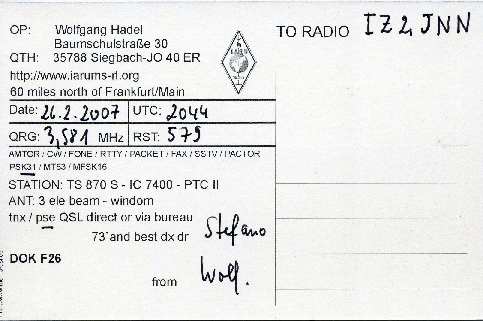 OP: Wolfgang Hadel
Baumschulstraße 30
QTH: 35788 Siegbach-JO 40 ER
http://www.iarums-r1.org
60 miles north of Frankfurt/Main
Date: 26.2.2007 UTC: 2044
QRG: 3,581 MHz RST: 579
AMTOR / CW / FONE / RTTY / PACKET / FAX / SSTV / PACTOR
PSK31 / MT63 / MFSK16
STATION: TS 870 S - IC 7400 - PTC II
ANT: 3 ele beam - windom
tnx / pse QSL direct or via bureau
73´and best dx dr Stefano
DOK F26
from Wolf.
TO RADIO IZ2JNN